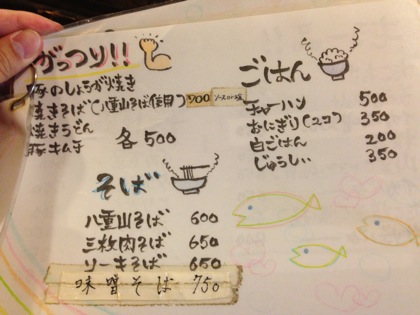 がっつり!!
豚のしょうが焼き
焼きそば(八重山そば使用) 700
焼きうどん
豚キムチ
各500
そば
八重山そば 600
三枚肉そば 650
ソーキそば 650
味噌そば 750
ごはん
チャーハン 500
おにぎり(2コ) 350
白ごはん 200
じゅうしぃ 350